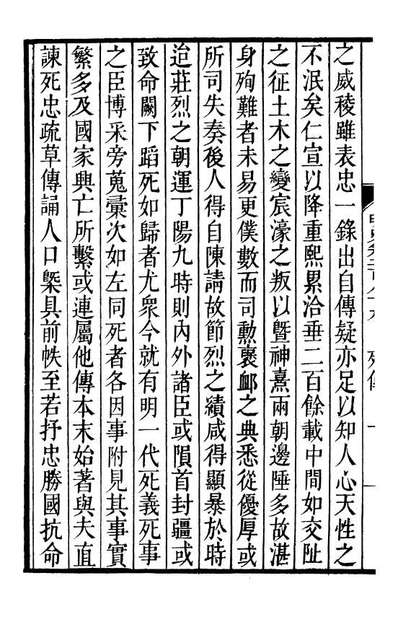 之威稜雖表忠一錄出自傳疑亦足以知人心天性之
不泯矣仁宣以降重熙累洽垂二百餘載中間如交阯
之征土木之變宸濠之叛以曁神熹兩朝邊陲多故湛
身殉難者未易更僕數而司勳褒衈之典悉從優厚或
所司失奏後人得自陳請故節烈之績咸得顯暴於時
迨莊烈之朝運丁陽九時則內外諸臣或隕首封疆或
致命闕下蹈死如歸者尤衆今就有明一代死義死事
之臣博采旁蒐彙次如左同死者各因事附見其事實
繁多及國家興亡所繫或連屬他傳本末始著與夫直
諫死忠疏草傳誦人口槩具前帙至若抒忠勝國抗命